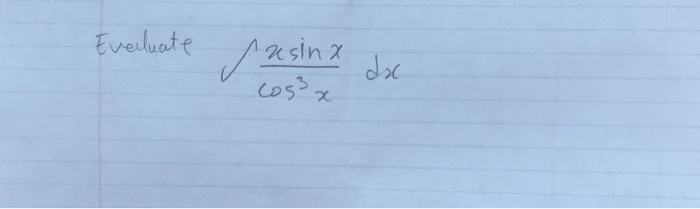 Evaluate ∫ x sin x / cos³ x dx